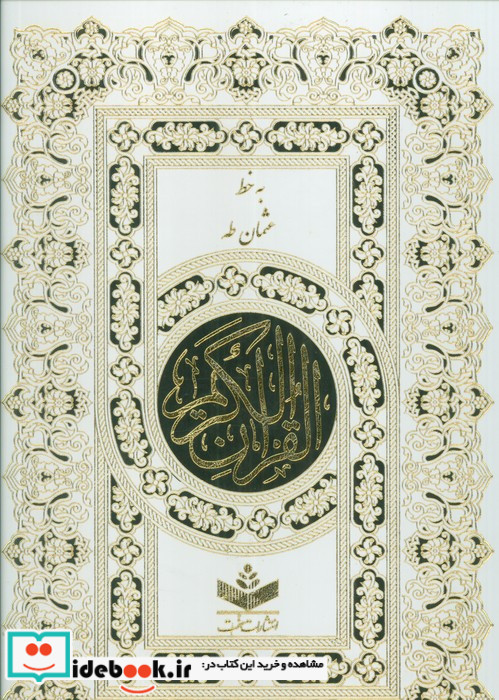 به خط
عثمان طه
القرآن الکریم
انتشارات
مشاهده و خرید این کتاب در:
idebook.ir